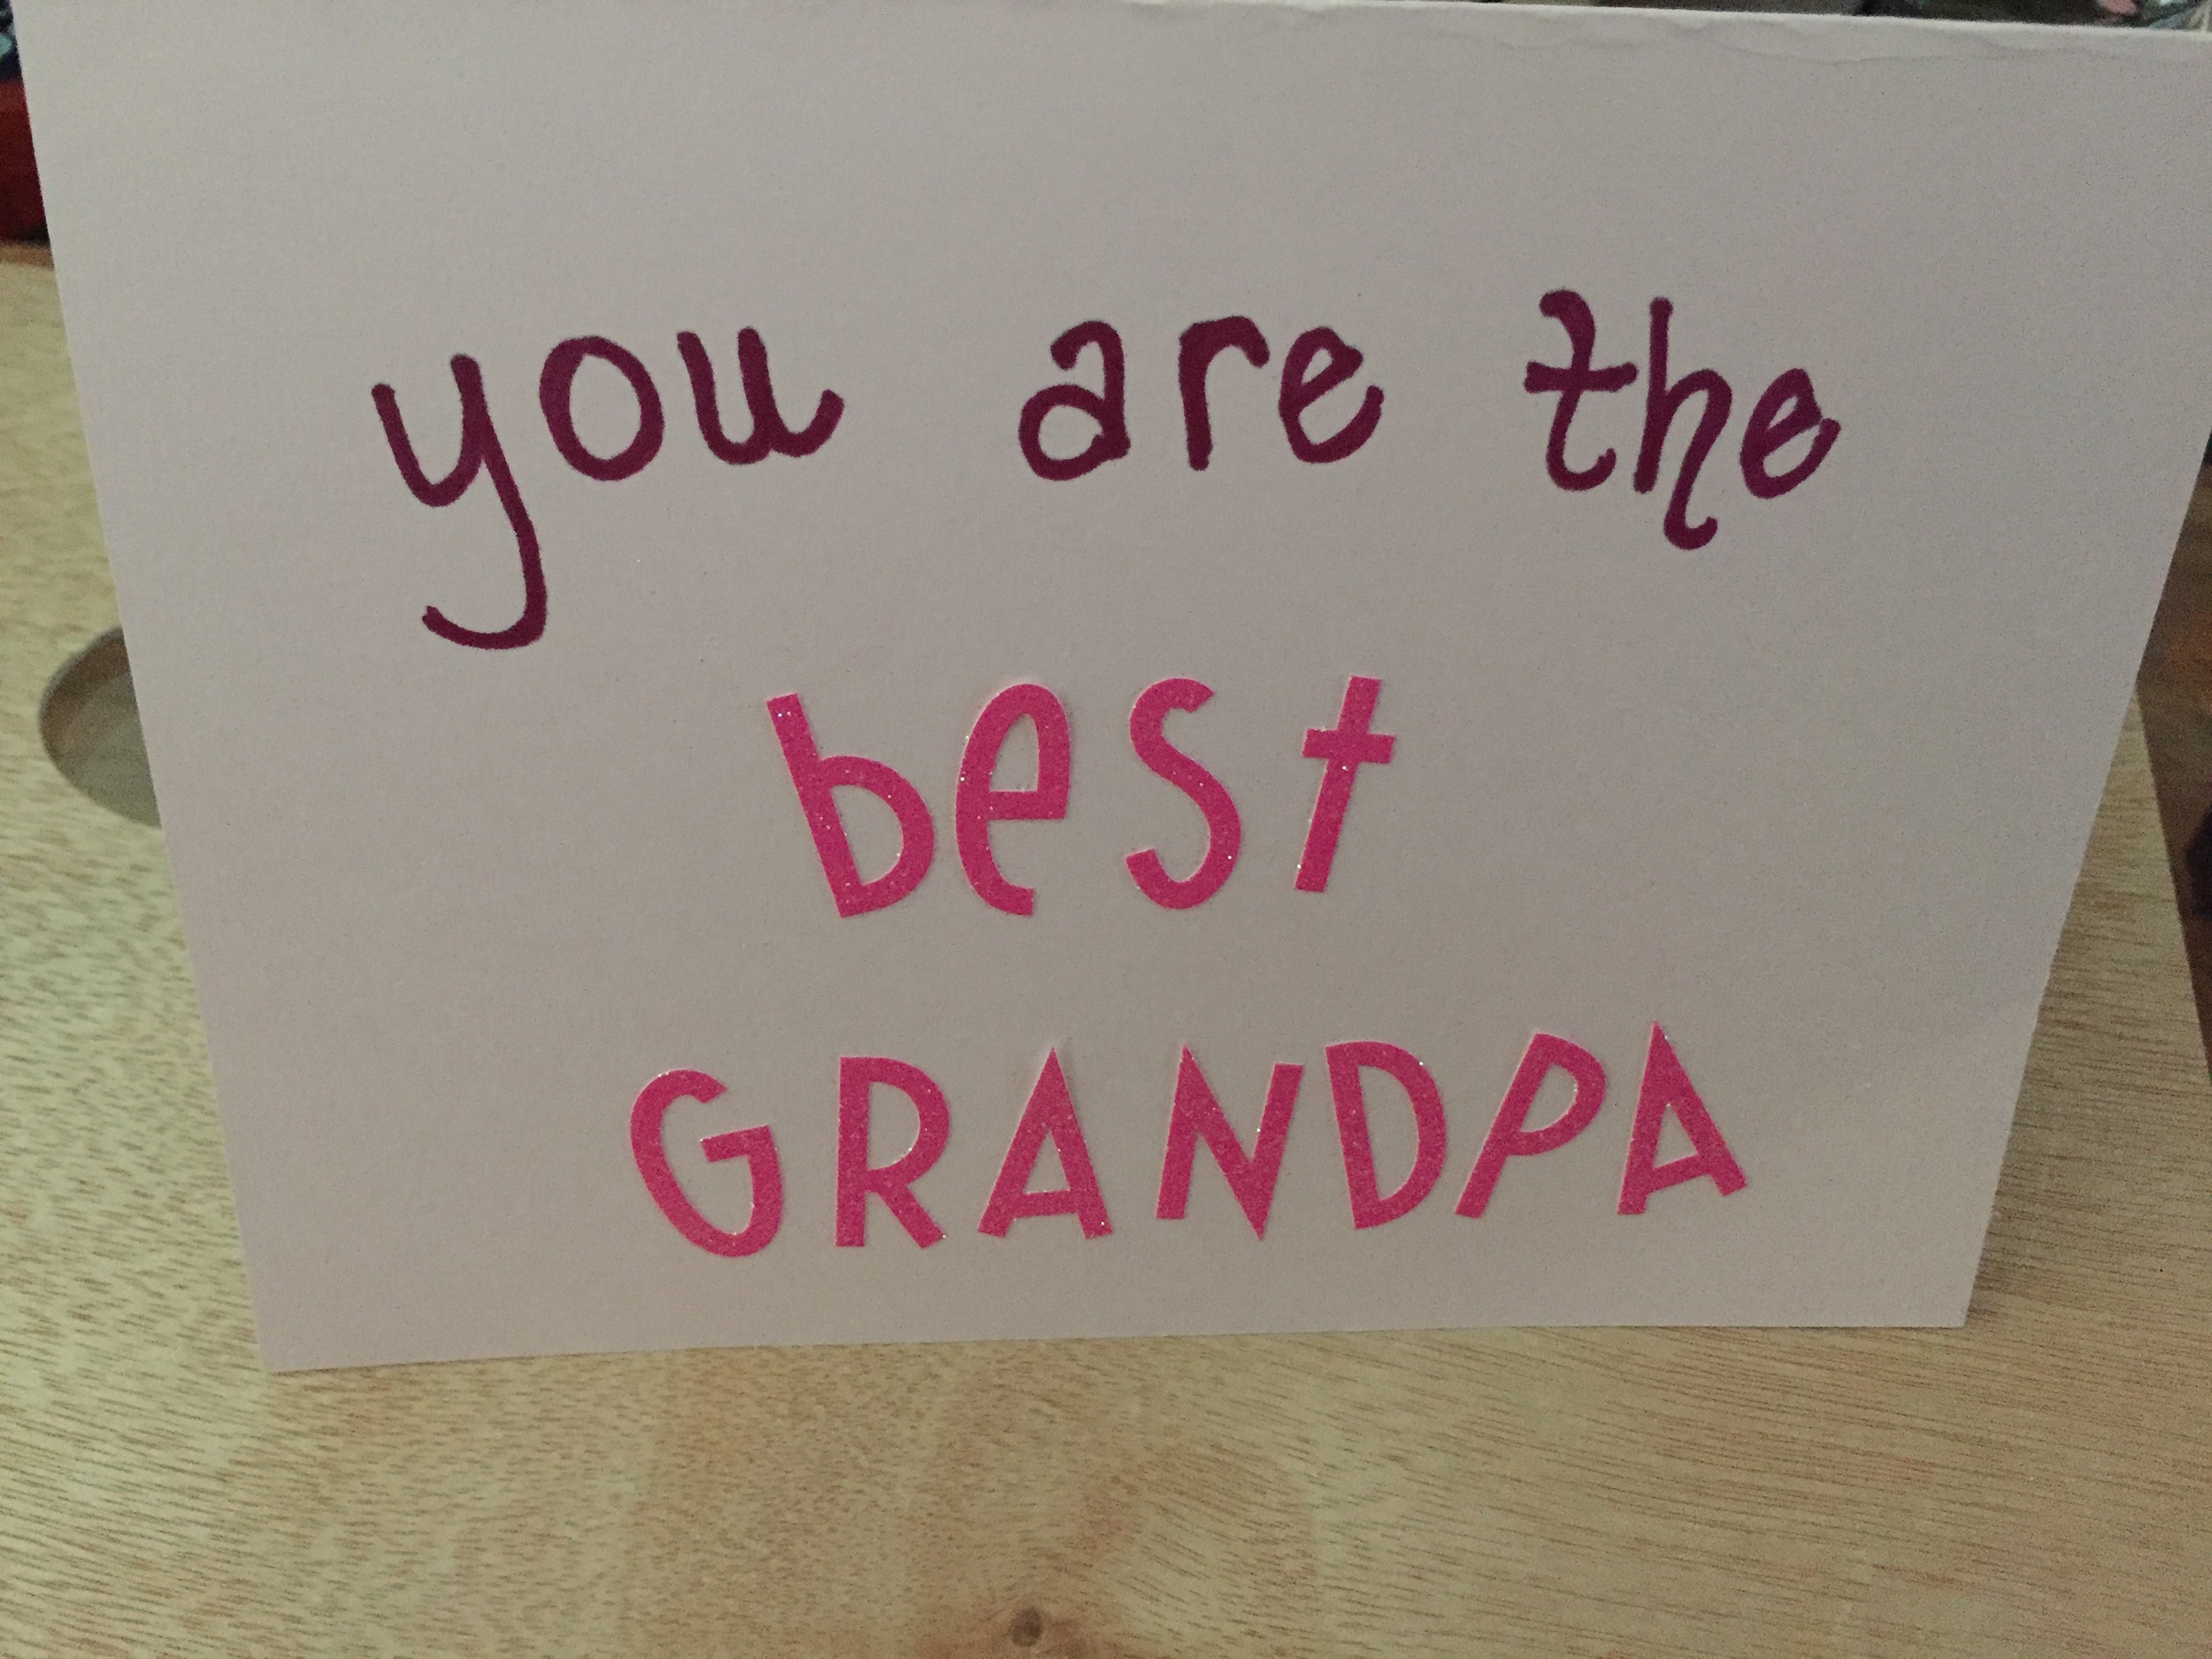 you are the
best
GRANDPA